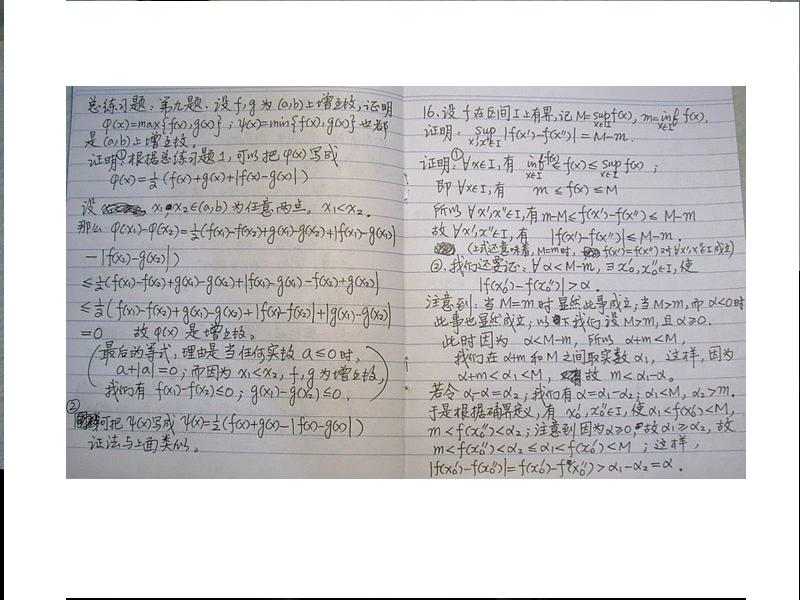 总练习题：第九题、设f,g为(a,b)上增函数，证明
φ(x)=max{f(x),g(x)}；ψ(x)=min{f(x),g(x)}也都
是(a,b)上增函数。
证明①根据总练习题1，可以把φ(x)写成
φ(x)=½(f(x)+g(x)+|f(x)-g(x)|)
设 x₁,x₂∈(a,b)为任意两点。x₁<x₂。
那么 φ(x₁)-φ(x₂)=½(f(x₁)-f(x₂)+g(x₁)-g(x₂)+|f(x₁)-g(x₁)|
-|f(x₂)-g(x₂)|)
≤½(f(x₁)-f(x₂)+g(x₁)-g(x₂)+|f(x₁)-g(x₁)-f(x₂)+g(x₂)|
≤½(f(x₁)-f(x₂)+g(x₁)-g(x₂)+|f(x₁)-f(x₂)|+|g(x₁)-g(x₂)|
=0 故φ(x)是增函数。
(最后的等式，理由是当任何实数a≤0时，
a+|a|=0；而因为x₁<x₂，f,g为增函数，
我们有 f(x₁)-f(x₂)≤0；g(x₁)-g(x₂)≤0。)
②
可把ψ(x)写成 ψ(x)=½(f(x)+g(x)-|f(x)-g(x)|)
证法与上面类似。
16.设f在区间I上有界，记M=sup f(x)，m=inf f(x)。
x∈I x∈I
证明：sup |f(x')-f(x'')|=M-m.
x',x''∈I
证明：①∀x∈I，有 inf f(x)≤f(x)≤sup f(x)；
x∈I x∈I
即∀x∈I，有 m≤f(x)≤M
所以∀x',x''∈I，有m-M≤f(x')-f(x'')≤M-m
故∀x',x''∈I，有 |f(x')-f(x'')|≤M-m.
(上式还意味着，M=m时，f(x')=f(x'')对∀x',x''∈I成立)
②.我们还要证：∀α<M-m，∃x₀',x₀''∈I，使
|f(x₀')-f(x₀'')|>α.
注意到：当M=m时显然此事成立；当M>m，而α<0时
此事也显然成立；以下我们设M>m，且α≥0.
此时因为 α<M-m，所以 α+m<M，
我们在α+m和M之间取实数α₁，这样，因为
α+m<α₁<M，故 m<α₁-α。
若令α₁-α=α₂；我们有α=α₁-α₂；α₁<M，α₂>m.
于是根据确界定义，有 x₀',x₀''∈I，使α₁<f(x₀')<M，
m<f(x₀'')<α₂；注意到因为α≥0，故α₁≥α₂，故
m<f(x₀'')<α₂≤α₁<f(x₀')<M；这样，
|f(x₀')-f(x₀'')|=f(x₀')-f(x₀'')>α₁-α₂=α.